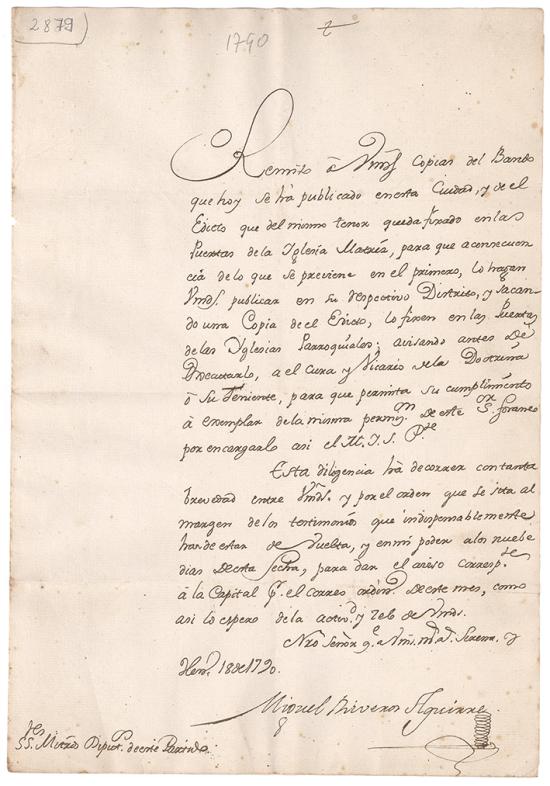 2879
1790
Remito â Vmds Copias del Bando
que hoy se hâ publicado en esta Ciudad, y de el
Edicto que del mismo tenor queda fixado en las
Puertas de la Yglesia Matriz, para que a consecuen
cia de lo que se previene en el primero, lo hagan
Vmds. publicar en su respectivo Districto, y sacan
do una Copia de el Edicto, lo fixen en las Puertas
de las Yglesias Parroquiales; avisando antes de
executarlo, a el Cura y Vicario de la Doctrina
ô su Theniente, para que permita su cumplimiento
â exemplar de la misma permisn. de este Sor. foraneo
por encargarlo asi el M. I. S. Pte
Esta diligencia hâ de correr con tanta
brevedad entre Vmds. y por el orden que se sita al
margen de los testimonios que indispensablemente
han de estar de vuelta, y en mi poder a los nuebe
dias de esta fecha, para dar el aviso correspte
â la Capital pr. el correo ordino. de este mes, como
asi lo espero de la activd. y zelo de Vmds.
Nro Señor ge. a Vms. ms. as. Serena y
Heno. 18 de 1790.
Miguel Riveros Aguirre
SS. Mitros Diputs. de este Partido